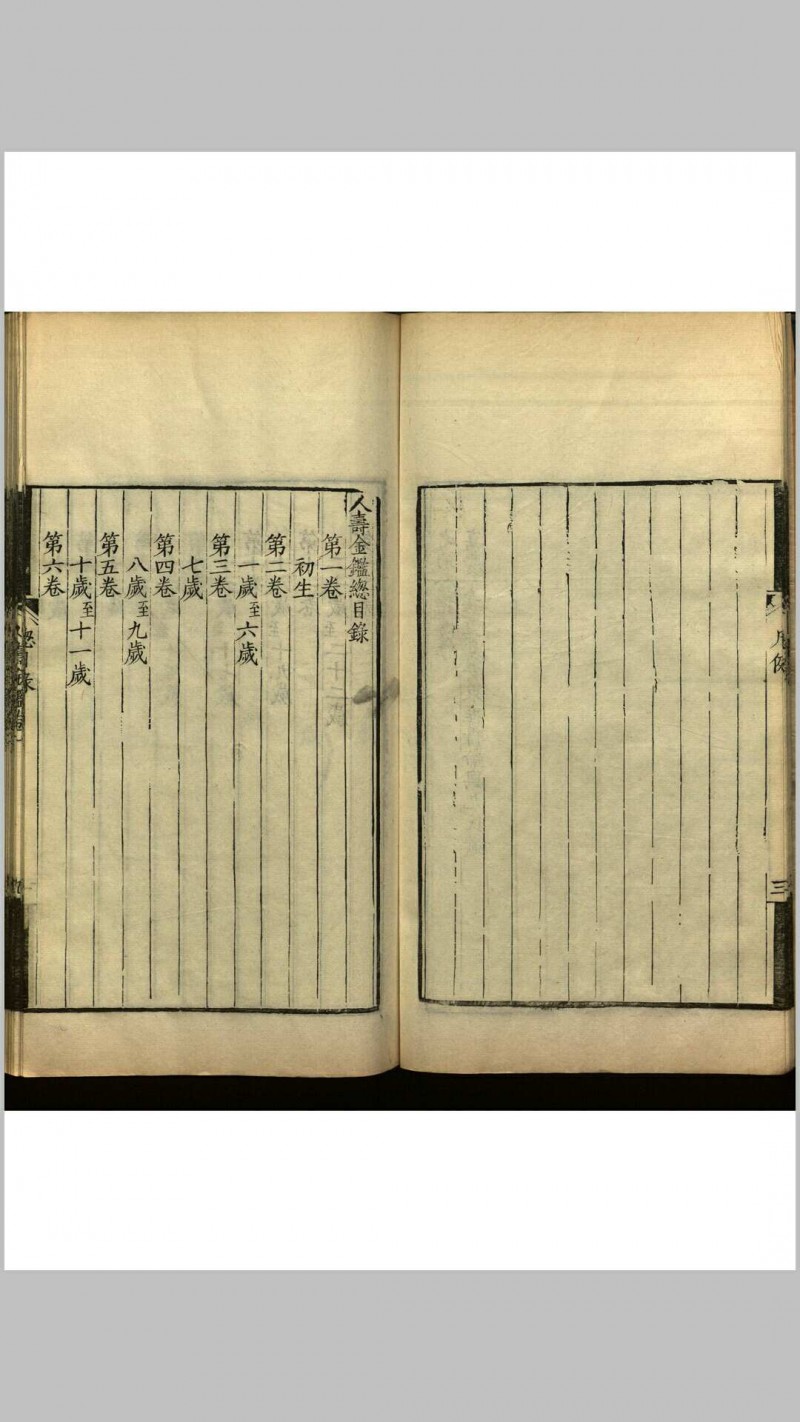 凡例
三
人壽金鑑總目錄
第一卷
初生
第二卷
一歲至六歲
第三卷
七歲
第四卷
八歲至九歲
第五卷
十歲至十一歲
第六卷
總目錄